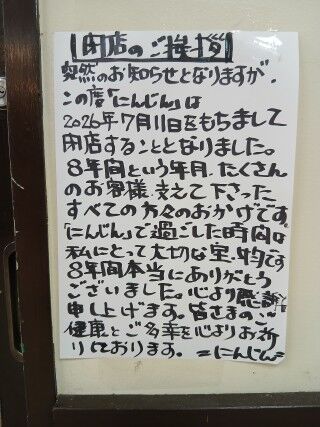 閉店のご挨拶
突然のお知らせとなりますが、
この度「にんじん」は
2026年7月11日をもちまして
閉店することとなりました。
8年間という年月、たくさん
のお客様、支えて下さった
すべての方々のおかげです。
「にんじん」で過ごした時間は
私にとって大切な宝物です
8年間本当にありがとう
ございました。心より感謝
申し上げます。皆さまのご
健康とご多幸を心よりお祈
りしております。 =にんじん=